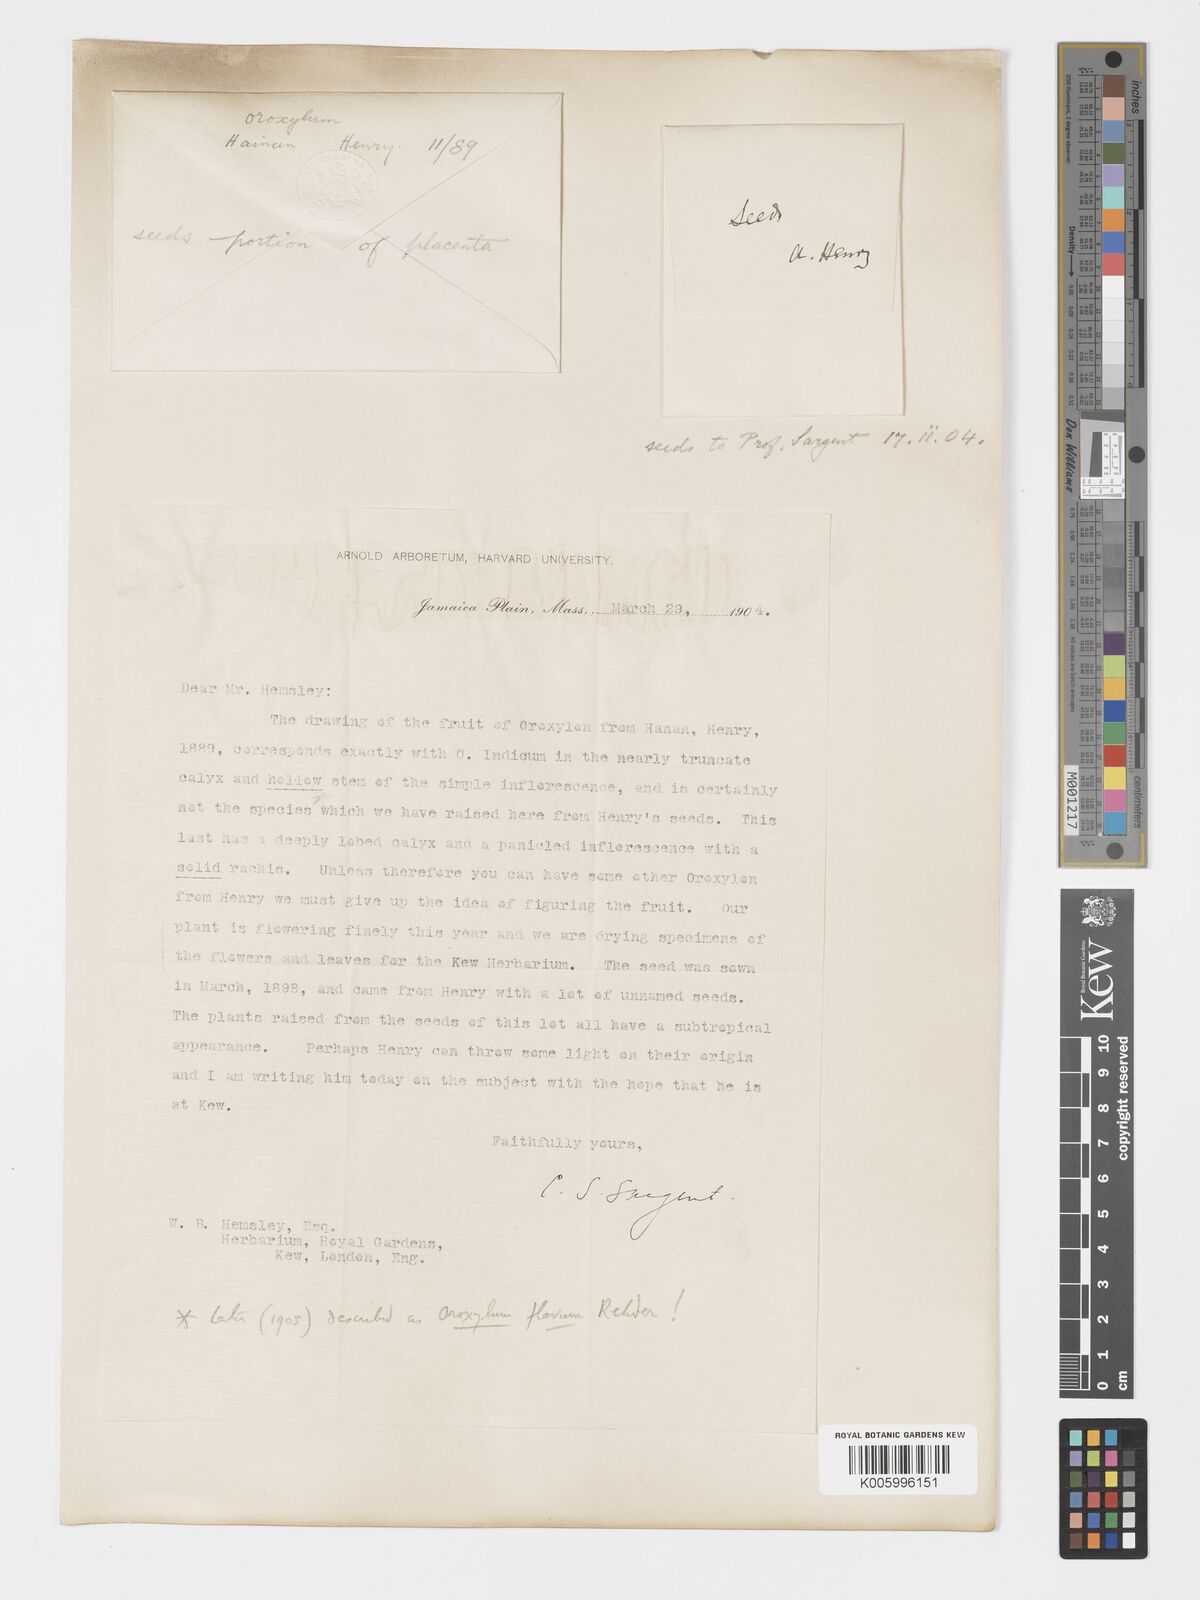 Oroxylum
Hainan Henry. 11/89
seeds portion of placenta
Seeds
A. Henry
seeds to Prof. Sargent 17.ii.04.
ARNOLD ARBORETUM, HARVARD UNIVERSITY.
Jamaica Plain, Mass., March 29, 1904.
Dear Mr. Hemsley:
The drawing of the fruit of Oroxylon from Hanan, Henry,
1889, corresponds exactly with O. Indicum in the nearly truncate
calyx and hollow stem of the simple inflorescence, and is certainly
not the species * which we have raised here from Henry's seeds. This
last has a deeply lobed calyx and a panicled inflorescence with a
solid rachis. Unless therefore you can have some other Oroxylon
from Henry we must give up the idea of figuring the fruit. Our
plant is flowering finely this year and we are drying specimens of
the flowers and leaves for the Kew Herbarium. The seed was sown
in March, 1898, and came from Henry with a lot of unnamed seeds.
The plants raised from the seeds of this lot all have a subtropical
appearance. Perhaps Henry can throw some light on their origin
and I am writing him today on the subject with the hope that he is
at Kew.
Faithfully yours,
C. S. Sargent.
W. B. Hemsley, Esq.
Herbarium, Royal Gardens,
Kew, London, Eng.
* Later (1905) described as Oroxylum flavum Rehder!
ROYAL BOTANIC GARDENS KEW
K005996151
inches
centimeters
Density
Don Williams
M001217
Royal Botanic Gardens
Kew
copyright reserved
0 1 2 3 4 5 6 7 8 9 10
cm